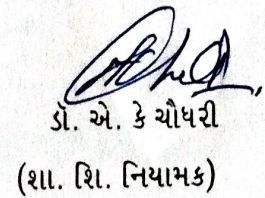 ડૉ. એ. કે ચૌધરી
(શા. શિ. નિયામક)